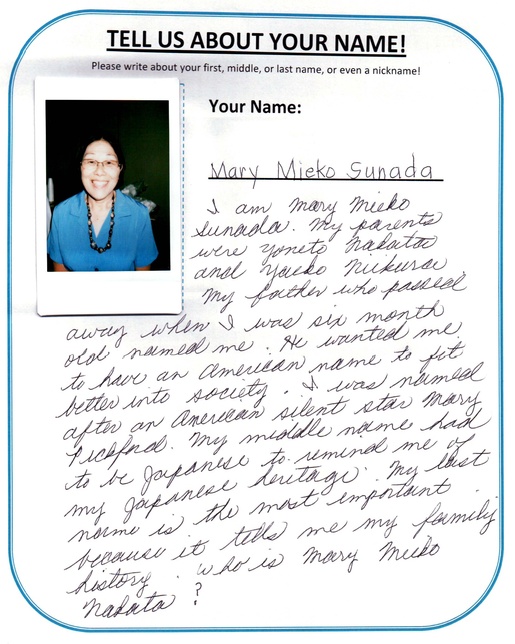 TELL US ABOUT YOUR NAME!
Please write about your first, middle, or last name, or even a nickname!
Your Name:
Mary Mieko Sunada
I am Mary Mieko
Sunada. My parents
were Yoneto Nakata
and Yaeko Niikura.
My father who passed
away when I was six month
old named me. He wanted me
to have an American name to fit
better into society. I was named
after an American silent star Mary
Pickford. My middle name had
to be Japanese to remind me of
my Japanese heritage. My last
name is the most important
because it tells me my family
history. Who is Mary Mieko
Nakata?